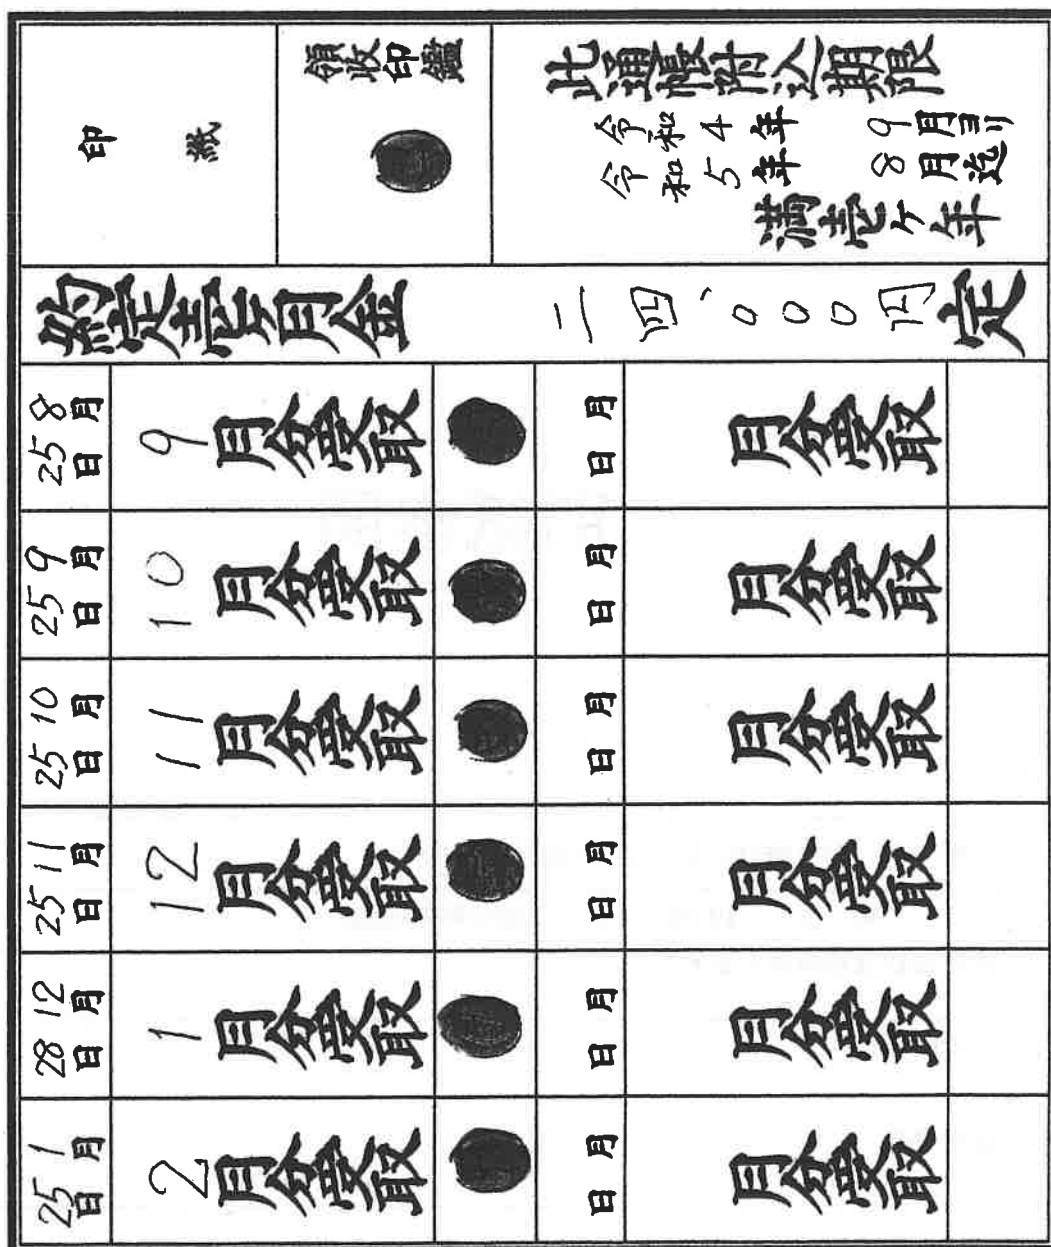 印紙
領収印鑑
此通帳附込期限
令和4年9月ヨリ
令和5年8月迄
満壱ケ年
約定壱ケ月金 二四、〇〇〇円 定
8月25日 9月分受取
月日 月分受取
9月25日 10月分受取
月日 月分受取
10月25日 11月分受取
月日 月分受取
11月25日 12月分受取
月日 月分受取
12月28日 1月分受取
月日 月分受取
1月25日 2月分受取
月日 月分受取